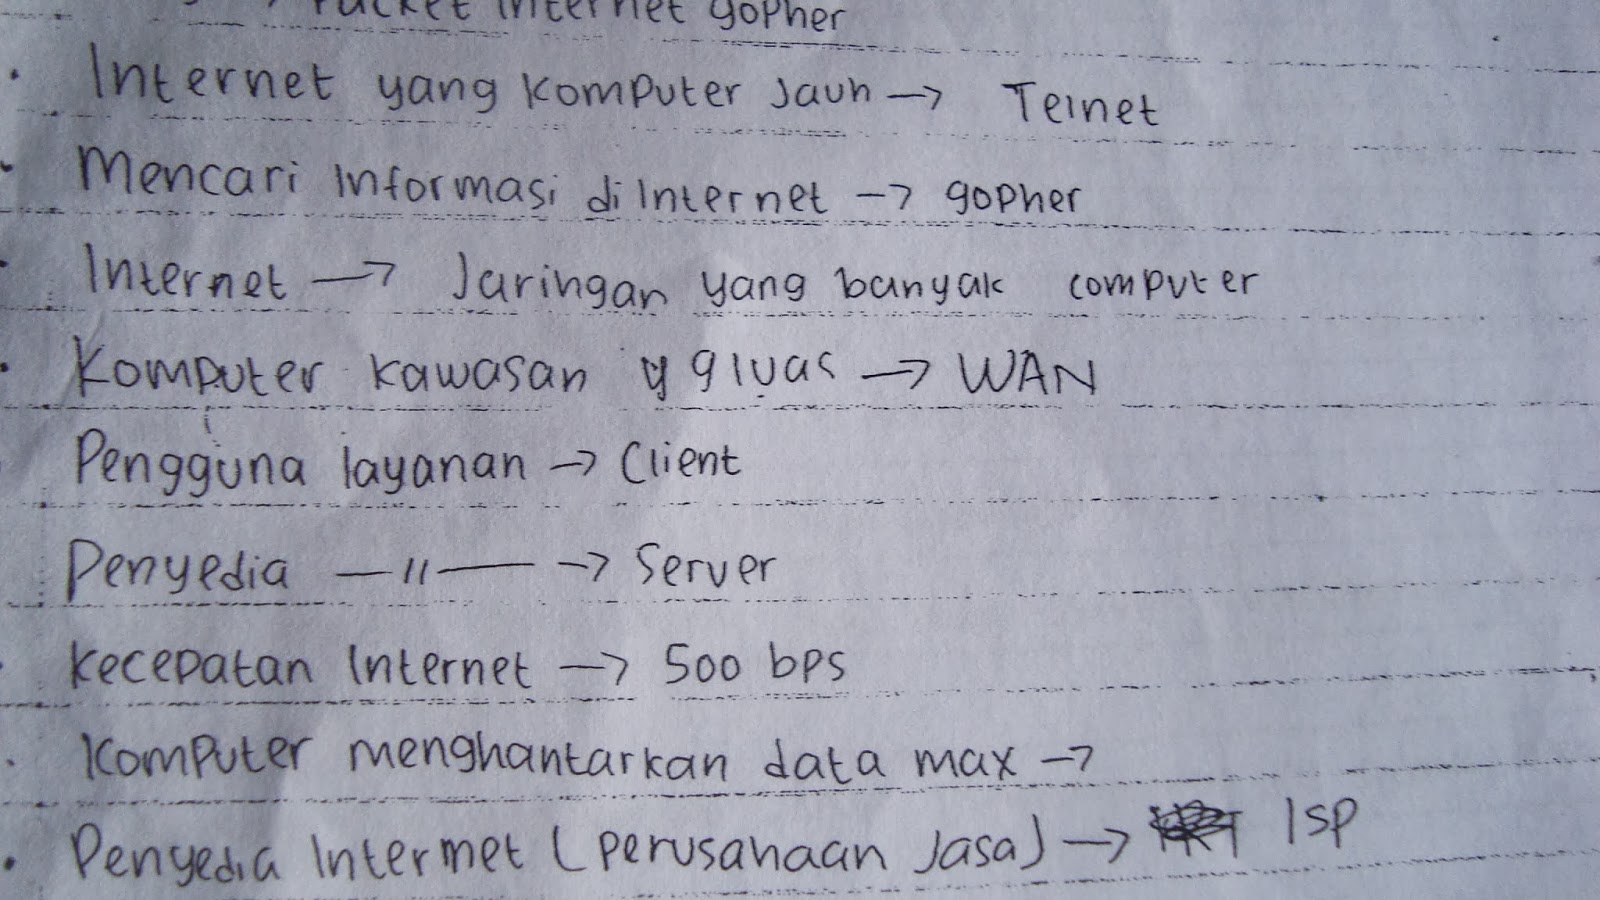 → Packet Internet gopher
• Internet yang komputer Jauh → Telnet
• Mencari Informasi di Internet → gopher
• Internet → Jaringan yang banyak computer
• Komputer kawasan yg luas → WAN
Pengguna layanan → Client
Penyedia — 〃 — → Server
• Kecepatan Internet → 500 bps
• Komputer menghantarkan data max →
• Penyedia Internet (perusahaan Jasa) → Isp